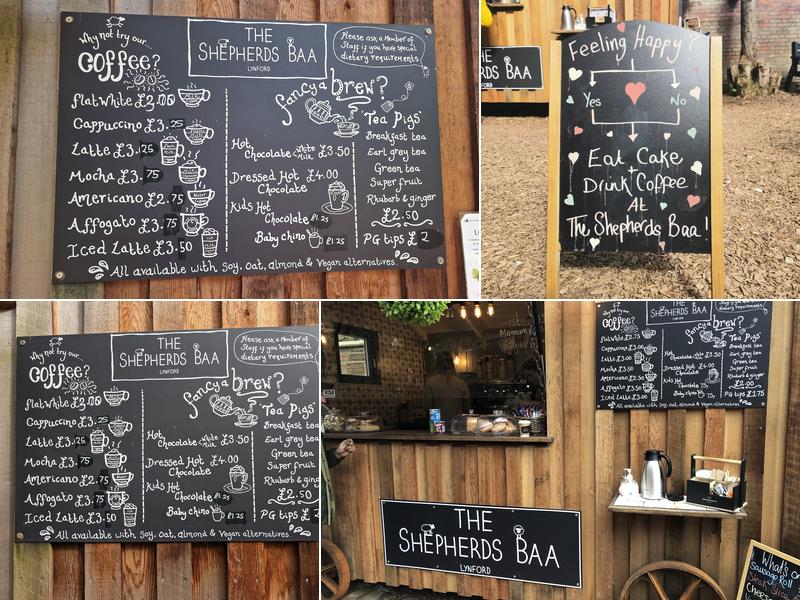 Why not try our...
Coffee?
THE
SHEPHERDS BAA
LYNFORD
Please ask a Member of
Staff if you have special
dietary requirements
Flat White £3.00
Cappuccino £3.25
Latte £3.25
Mocha £3.75
Americano £2.75
Affogato £3.75
Iced Latte £3.50
fancy a brew?
Hot Chocolate white Milk £3.50
Dressed Hot Chocolate £4.00
Kids Hot Chocolate £1.25
Baby chino £1.25
Tea Pigs
Breakfast tea
Earl grey tea
Green tea
Super fruit
Rhubarb & ginger
£2.50
PG tips £2
All available with Soy, Oat, almond & Vegan alternatives.
S BAA
Feeling Happy?
Yes
No
Eat Cake
+
Drink Coffee
At
The Shepherds Baa!
Why not try our...
Coffee?
THE
SHEPHERDS BAA
LYNFORD
Please ask a Member of
Staff if you have special
dietary requirements
Flat White £3.00
Cappuccino £3.25
Latte £3.25
Mocha £3.75
Americano £2.75
Affogato £3.75
Iced Latte £3.50
fancy a brew?
Hot Chocolate white Milk £3.50
Dressed Hot Chocolate £4.00
Kids Hot Chocolate £1.25
Baby chino £1.25
Tea Pigs
Breakfast tea
Earl grey tea
Green tea
Super fruit
Rhubarb & ging
£2.50
PG tips £2
All available with Soy, Oat, almond & Vegan alternatives.
THE
SHEPHERDS BAA
LYNFORD
Coffee?
THE
SHEPHERDS BAA
fancy a brew?
Tea Pigs
Flat White
Cappuccino
Latte
Mocha
Americano
Affogato
Iced Latte
Breakfast tea
Earl grey tea
Green tea
Super fruit
Rhubarb & ginger
£2.00
PG tips £1.75
All available with Soy, Oat, almond & Vegan alternatives.
What's o
Sausage Roll
Steak Slice
Chee